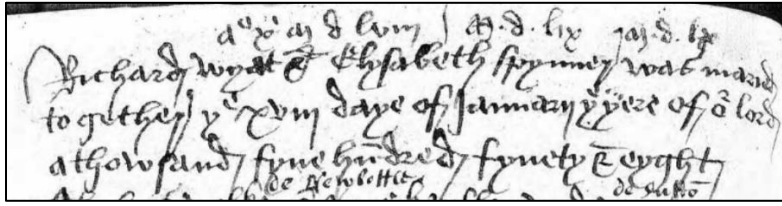 aº xⁱ m d lviii m · d · lix m · d · lx
Richard wyat & Elysabeth spynner was maried
together yᵉ xviii daye of Januarii yᵉ yere of oʳ lord
a thowsand fyve hūdred fyvety & eyght
de Newbottle de Sutto